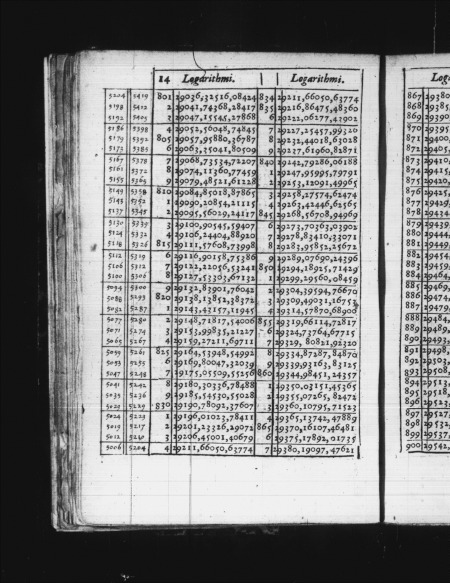 14 Logarithmi. Logarithmi.
5204 5419 801 29036,32516,08424 834 29211,66050,63774
5198 5412 2 29041,74368,28417 835 29216,86475,48360
5192 5405 3 29047,15545,27868 6 29222,06277,43902
5186 5398 4 29052,56048,74845 7 29227,25457,99320
5179 5392 805 29057,95880,36787 8 29232,44018,63028
5172 5385 6 29063,35041,80509 9 29237,61960,82871
5167 5378 7 29068,73534,72207 840 29242,79286,06188
5161 5372 8 29074,11360,77459 1 29247,95995,79791
5155 5365 9 29079,48521,61228 2 29253,12091,49965
5149 5358 810 29084,85018,87865 3 29258,27574,62474
5143 5352 1 29090,20854,21115 4 29263,42446,62565
5137 5345 2 29095,56029,24117 845 29268,56708,94969
5130 5339 3 29100,90545,59407 6 29273,70363,03902
5124 5332 4 29106,24404,88920 7 29278,83410,33071
5118 5326 815 29111,57608,73998 8 29283,95852,25671
5112 5319 6 29116,90158,75386 9 29289,07690,24396
5106 5312 7 29122,22056,53241 850 29294,18925,71429
5100 5306 8 29127,53303,67132 1 29299,29560,08459
5094 5300 9 29132,83901,76042 2 29304,39594,76670
5088 5293 820 29138,13852,38372 3 29309,49031,16753
5082 5287 1 29143,43157,11945 4 29314,57870,68900
5077 5280 2 29148,71817,54006 855 29319,66114,72817
5071 5274 3 29153,99835,21227 6 29324,73764,67715
5065 5267 4 29159,27211,69711 7 29329, 80821,92320
5059 5261 825 29164,53948,54992 8 29334,87287,84870
5053 5255 6 29169,80047,32039 9 29339,93163,83125
5047 5248 7 29175,05509,55256 860 29344,98451,24357
5041 5242 8 29180,30336,78488 1 29350,03151,45365
5035 5236 9 29185,54530,55028 2 29355,07265,82472
5029 5229 830 29190,78092,37607 3 29360,10795,71523
5024 5223 1 29196,01023,78411 4 29365,13742,47889
5019 5217 2 29201,23326,29072 865 29370,16107,46481
5012 5210 3 29206,45001,40679 6 29375,17892,01735
5006 5204 4 29211,66050,63774 7 29380,19097,47621